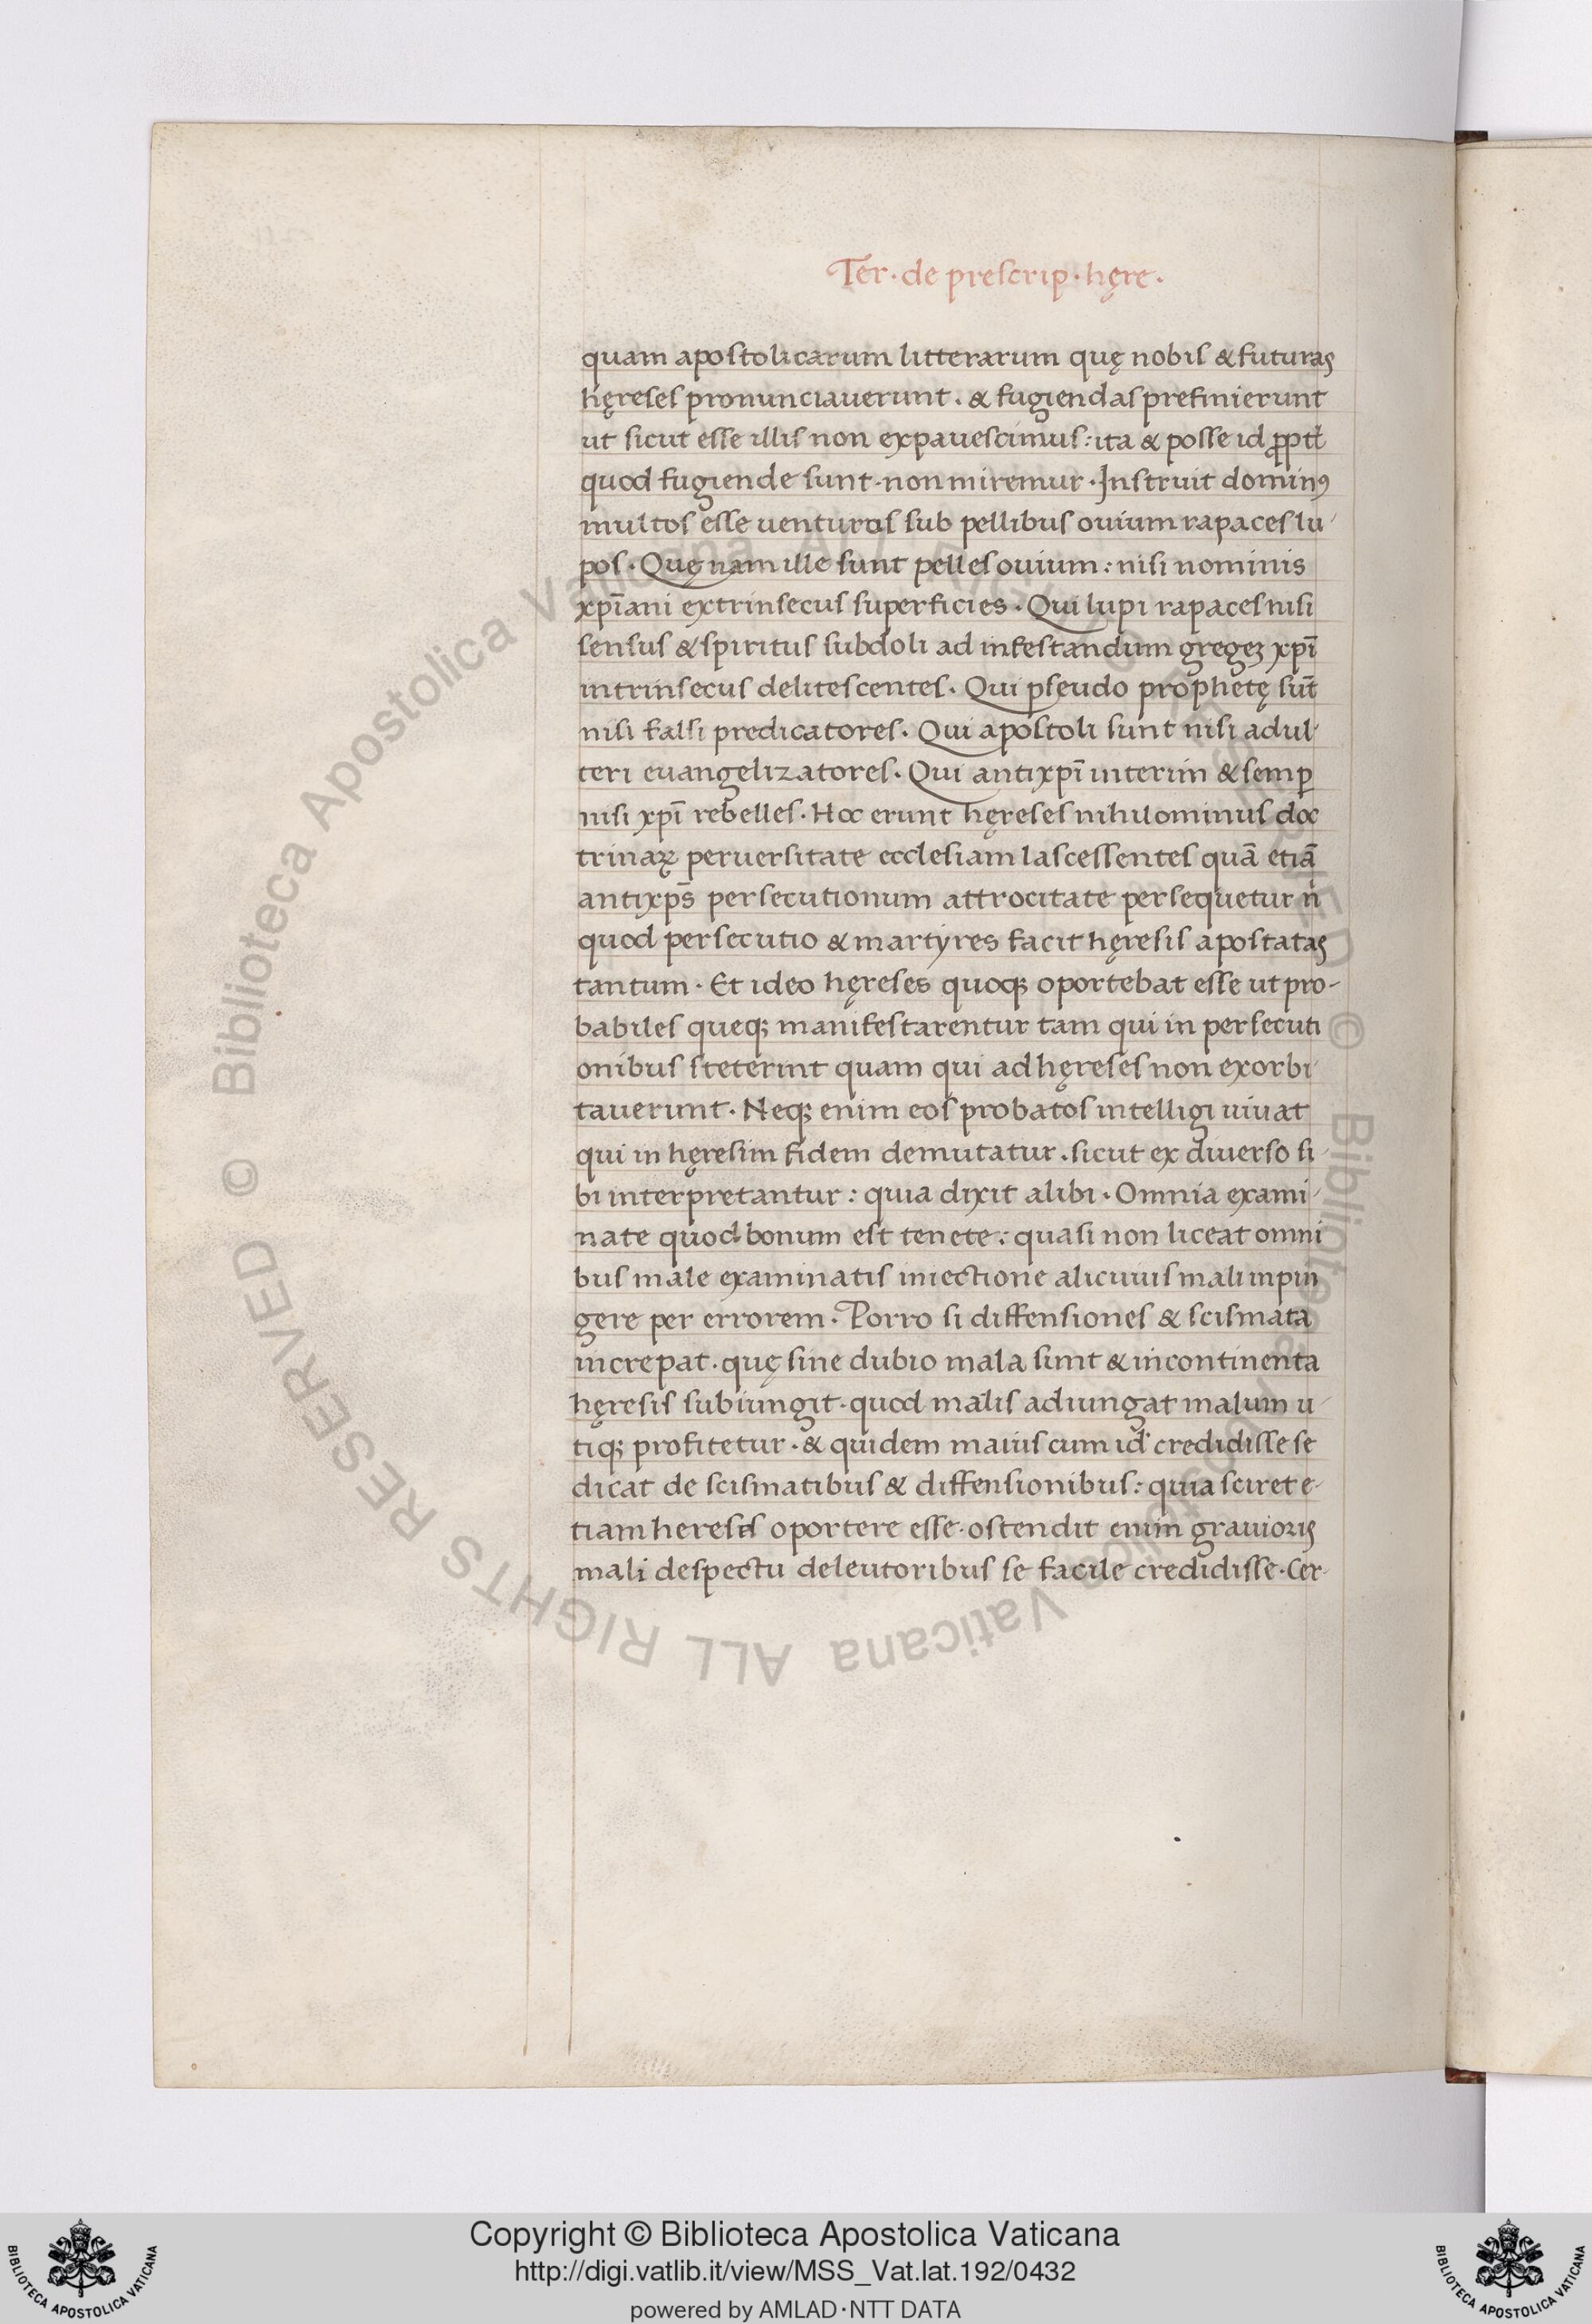 Ter · de prescrip · hęre ·
quam apostolicarum litterarum quę nobis & futuras
hęreses pronunciauerunt · & fugiendas prefinierunt
ut sicut esse illis non expauescimus : ita & posse id ꝓpt̄
quod fugiende sunt · non miremur · Instruit dominꝰ
multos esse uenturos sub pellibus ouium rapaces lu-
pos · Quę nam ille sunt pelles ouium : nisi nominis
xp̄iani extrinsecus superficies · Qui lupi rapaces nisi
sensus & spiritus subdoli ad infestandum gregeꝫ xp̄i
intrinsecus delitescentes · Qui pseudo prophetę sūt
nisi falsi predicatores · Qui apostoli sunt nisi adul-
teri euangelizatores · Qui antixp̄i interim & semꝑ
nisi xp̄i rebelles · Hoc erunt hęreses nihilominus doc
trinaꝝ peruersitate ecclesiam lascessentes quā etiā
antixp̄s persecutionum attrocitate persequetur n̄
quod persecutio & martyres facit hęresis apostatas
tantum · Et ideo hęreses quoqꝫ oportebat esse ut pro-
babiles queqꝫ manifestarentur tam qui in persecuti
onibus steterint quam qui ad hęreses non exorbi-
tauerunt · Neqꝫ enim eos probatos intelligi uiuat
qui in hęresim fidem demutatur · sicut ex diuerso si-
bi interpretantur : quia dixit alibi · Omnia exami-
nate quod bonum est tenete : quasi non liceat omni
bus male examinatis iniectione alicuius mali inpin
gere per errorem · Porro si diffensiones & scismata
increpat · quę sine dubio mala sunt & incontinenta
hęresis subiungit · quod malis adiungat malum u-
tiqꝫ profitetur · & quidem maius cum id credidisse se
dicat de scismatibus & diffensionibus : quia sciret e-
tiam heresis oportere esse · ostendit enim grauioris
mali despectu deleutoribus se facile credidisse · Cer-
© Biblioteca Apostolica Vaticana ALL RIGHTS RESERVED
© Biblioteca Apostolica Vaticana ALL RIGHTS RESERVED
Copyright © Biblioteca Apostolica Vaticana
http://digi.vatlib.it/view/MSS_Vat.lat.192/0432
powered by AMLAD·NTT DATA
BIBLIOTECA APOSTOLICA VATICANA
BIBLIOTECA APOSTOLICA VATICANA